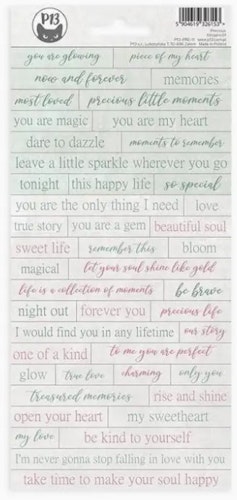 P13
5 904619 326153 >
Precious
you are glowing piece of my heart
now and forever memories
most loved precious little moments
you are magic you are my heart
dare to dazzle moments to remember
leave a little sparkle wherever you go
tonight this happy life so special
you are the only thing I need love
true story you are a gem beautiful soul
sweet life remember this bloom
magical let your soul shine like gold
life is a collection of moments be brave
night out forever you precious life
I would find you in any lifetime our story
one of a kind to me you are perfect
glow true love charming only you
treasured memories rise and shine
open your heart my sweetheart
my love be kind to yourself
I'm never gonna stop falling in love with you
take time to make your soul happy